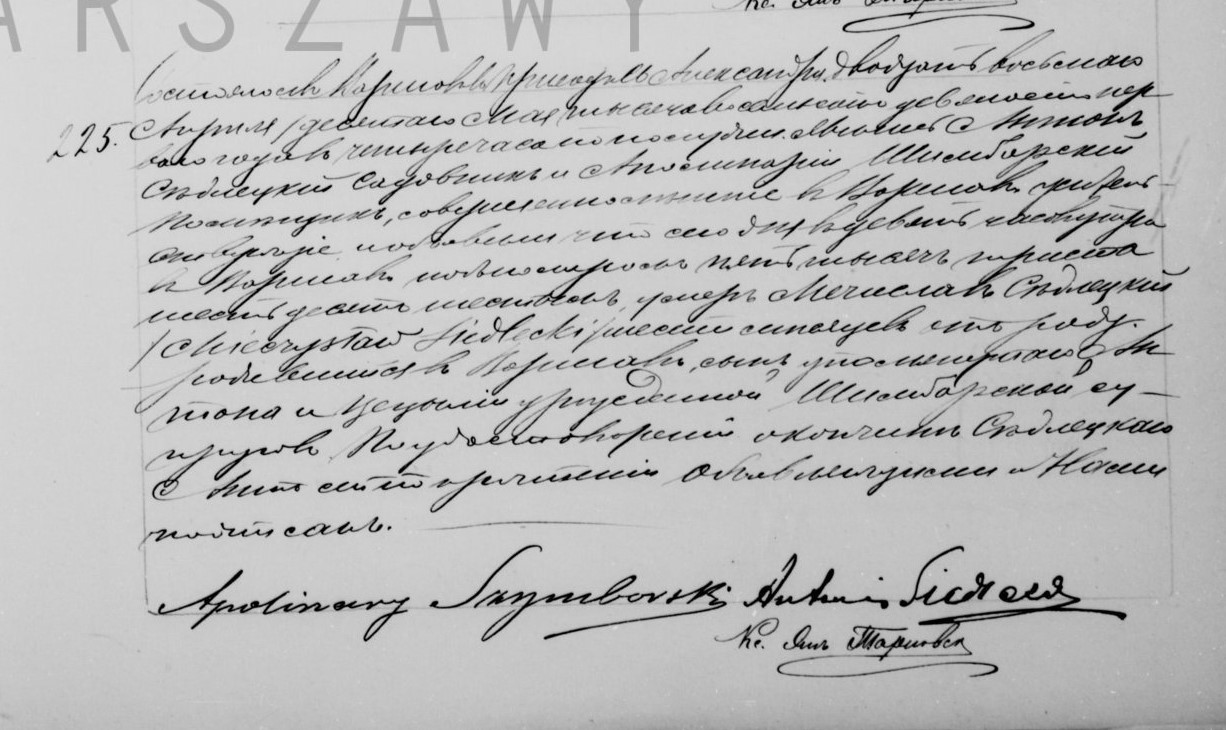 ARSZAWY
Кс. Янъ
Состоялось Варшавѣ приходѣ Александра двадцать восьмаго
225. Апрѣля / десятаго Мая тысяча восемьсотъ девяносто пер-
ваго года въ четыре часа по полудни. Явились Антонъ
Сѣдлецкій садовникъ и Аполинарій Шимборскій
совершеннолѣтніе въ Варшавѣ житель-
ствующіе и объявили что сего дня въ девять часовъ утра
въ Варшавѣ подъ номеромъ пять тысячъ триста
шестьдесятъ шестымъ, умеръ Мечиславъ Сѣдлецкій
/Mieczysław Siedlecki/ шесть мѣсяцевъ отъ роду.
родившійся въ Варшавѣ, сынъ упомянутаго Ан-
тона и Цециліи урожденной Шимборской су-
пруговъ По удостовѣреніи о кончинѣ Сѣдлецкаго
Актъ сей по прочтеніи объявляющими и Нами
подписанъ.
Apolinary Szymborski Antoni Siedlecki
Кс. Янъ Тарновск